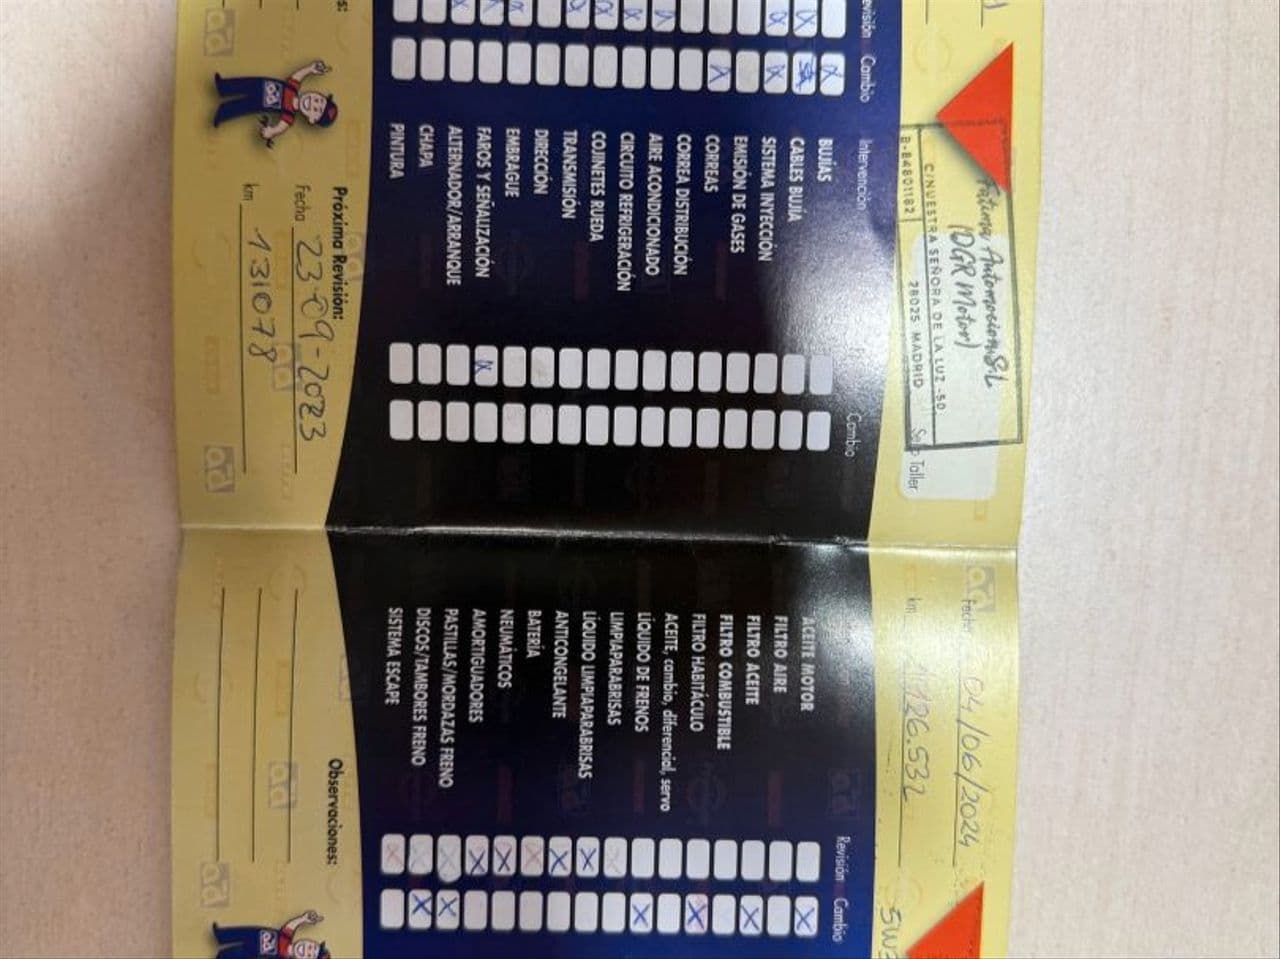 Revisión Cambio
Intervención
Cambio
BUJÍAS
CABLES BUJÍA
SISTEMA INYECCIÓN
EMISIÓN DE GASES
CORREAS
CORREA DISTRIBUCIÓN
AIRE ACONDICIONADO
CIRCUITO REFRIGERACIÓN
COJINETES RUEDA
TRANSMISIÓN
DIRECCIÓN
EMBRAGUE
FAROS Y SEÑALIZACIÓN
ALTERNADOR/ARRANQUE
CHAPA
PINTURA
Próxima Revisión:
Fecha 23-09-2023
km 131078
Fatima Automocion S.L
(DGR Motor)
C/NUESTRA SEÑORA DE LA LUZ -50
B-84801182 28025 MADRID
Taller
Fecha 04/06/2024
km 126.532
Revisión Cambio
ACEITE MOTOR
FILTRO AIRE
FILTRO ACEITE
FILTRO COMBUSTIBLE
FILTRO HABITÁCULO
ACEITE, cambio, diferencial, servo
LÍQUIDO DE FRENOS
LIMPIAPARABRISAS
LÍQUIDO LIMPIAPARABRISAS
ANTICONGELANTE
BATERÍA
NEUMÁTICOS
AMORTIGUADORES
PASTILLAS/MORDAZAS FRENO
DISCOS/TAMBORES FRENO
SISTEMA ESCAPE
Observaciones: